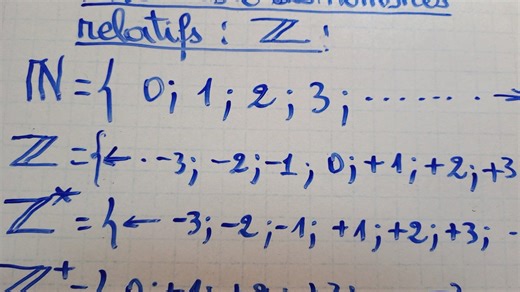 relatifs : ℤ :
ℕ = { 0 ; 1 ; 2 ; 3 ; ....... →
ℤ = {← . -3 ; -2 ; -1 ; 0 ; +1 ; +2 ; +3
ℤ* = {← -3 ; -2 ; -1 ; +1 ; +2 ; +3 ; .
ℤ⁺ = { 0 ; +1 ; +2 ;